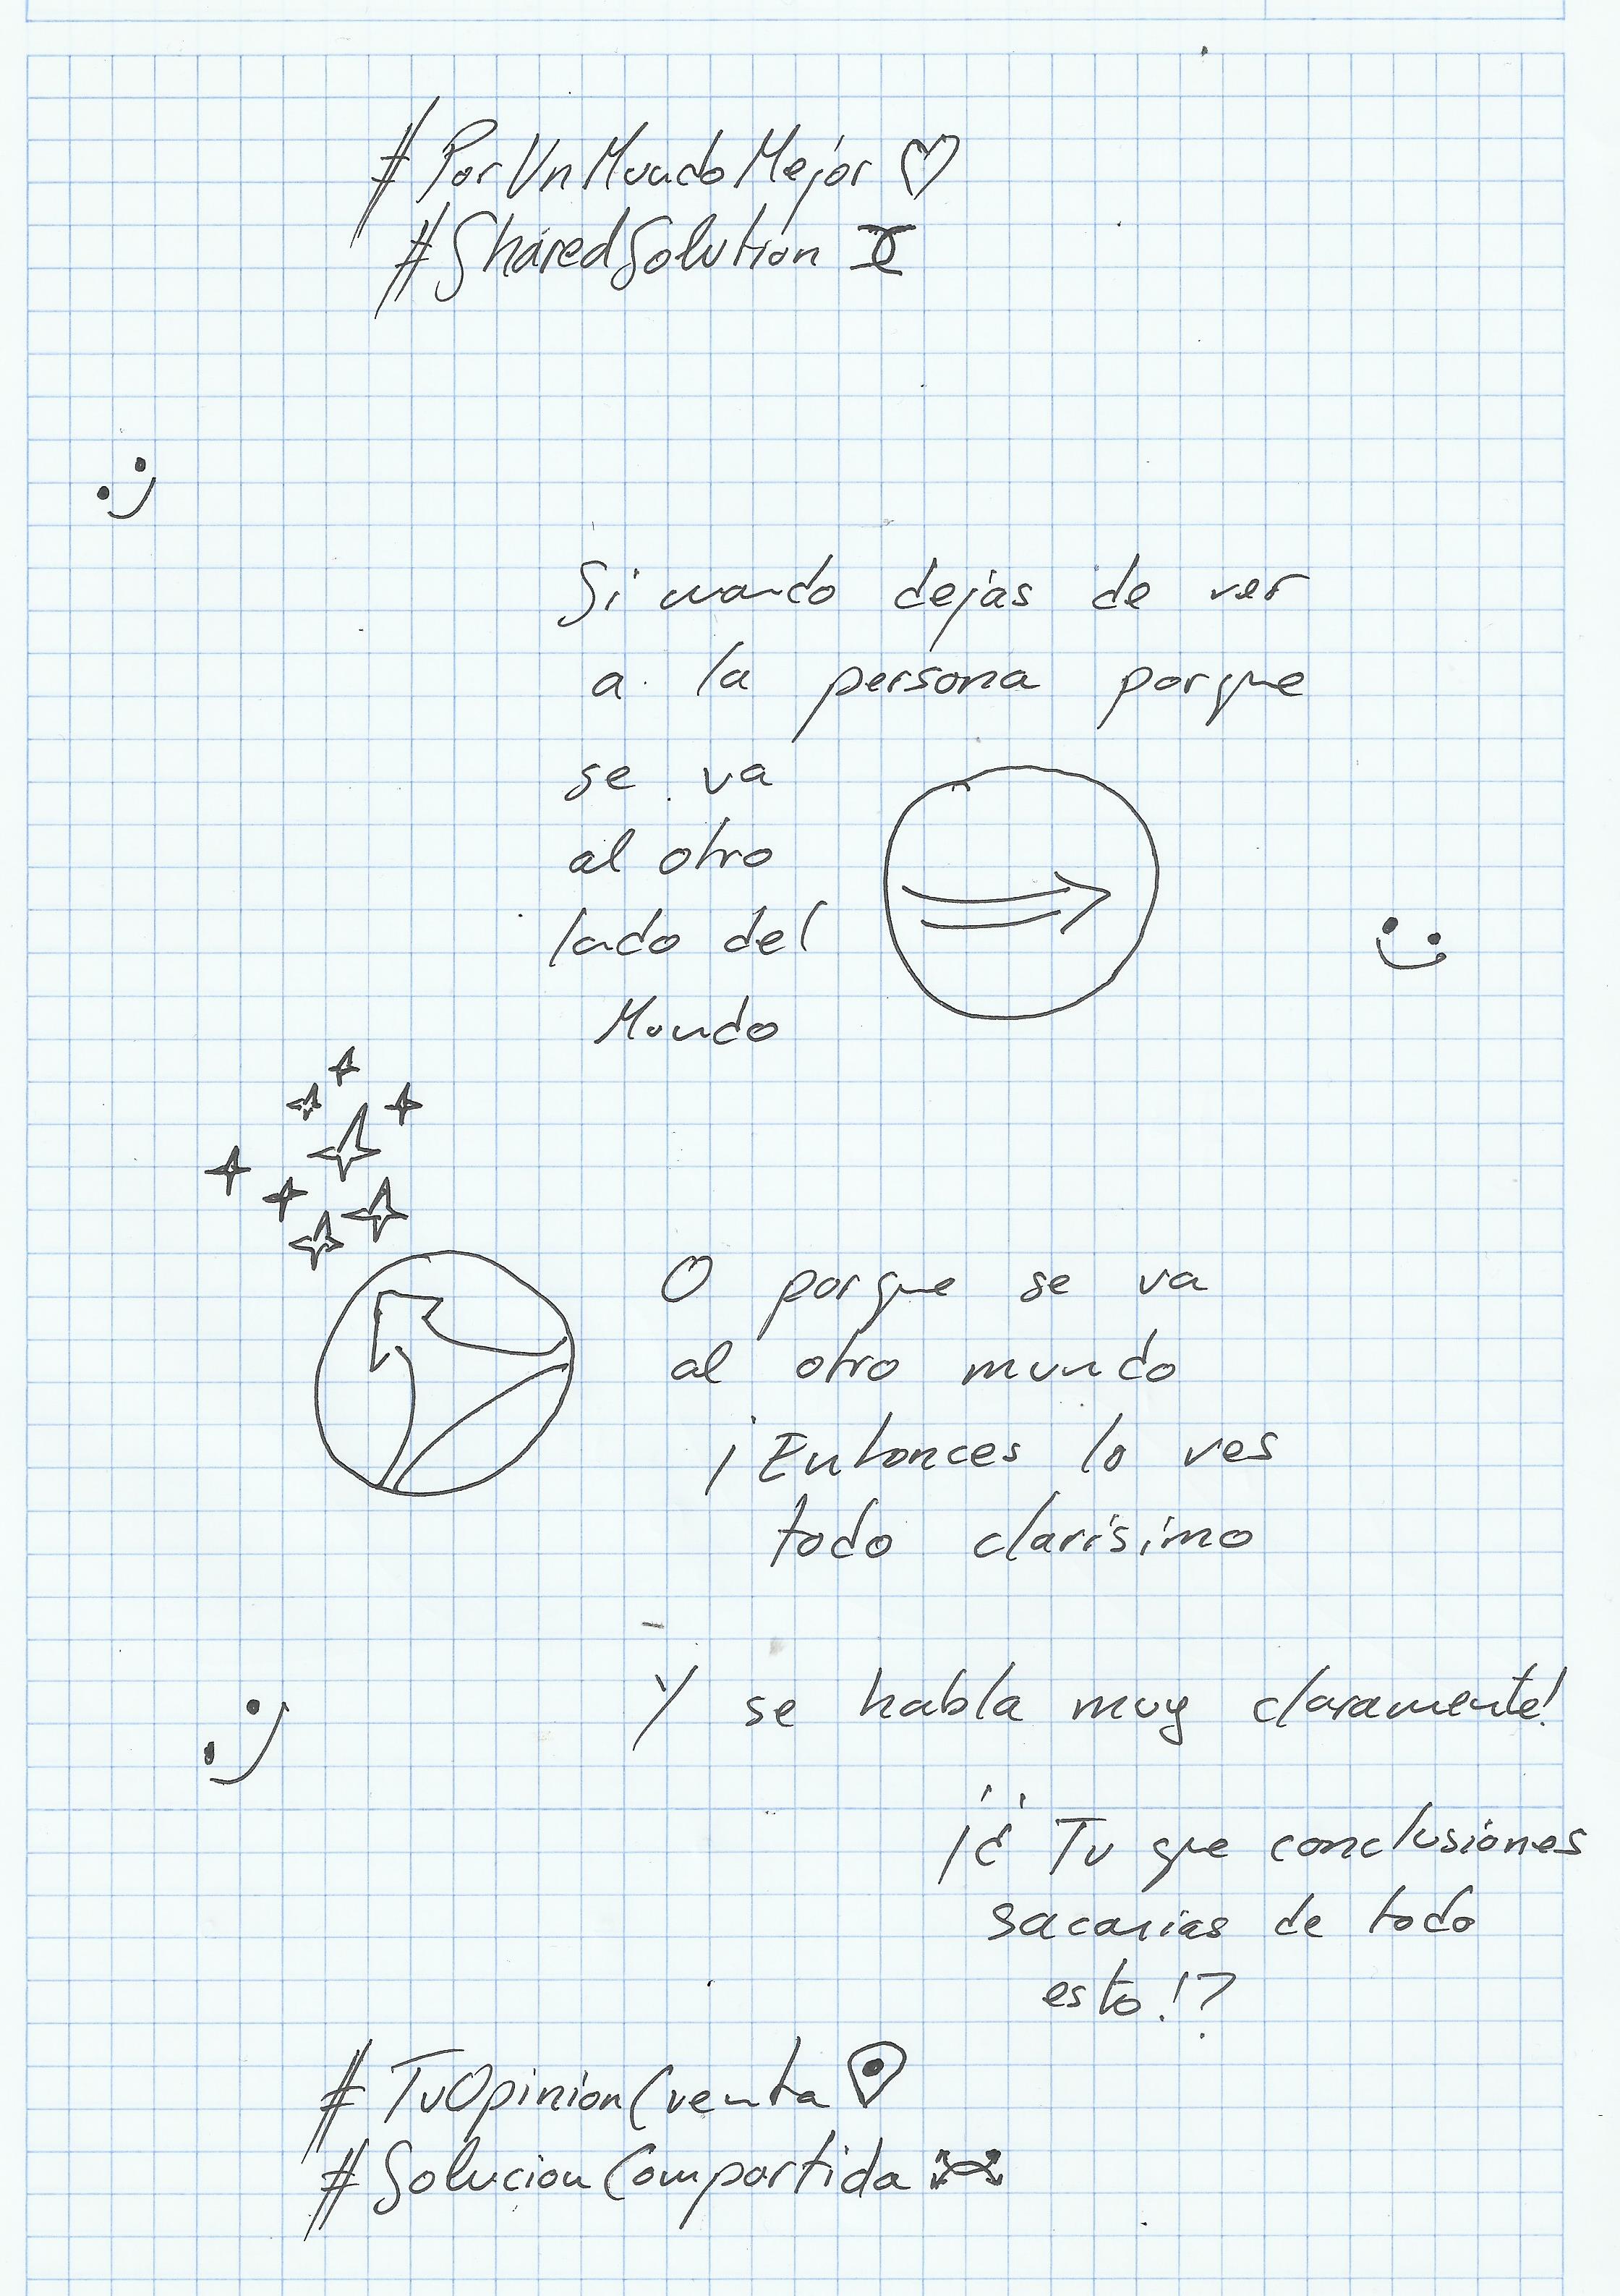 #PorUnMundoMejor ♡
#SharedSolution
:)
Si cuando dejas de ver
a la persona porque
se va
al otro
lado del
Mundo
:)
O porque se va
al otro mundo
¡Entonces lo ves
todo clarisimo
Y se habla muy claramente!
:)
¡¿ Tu que conclusiones
sacarias de todo
esto!?
#TuOpinionCuenta
#SolucionCompartida